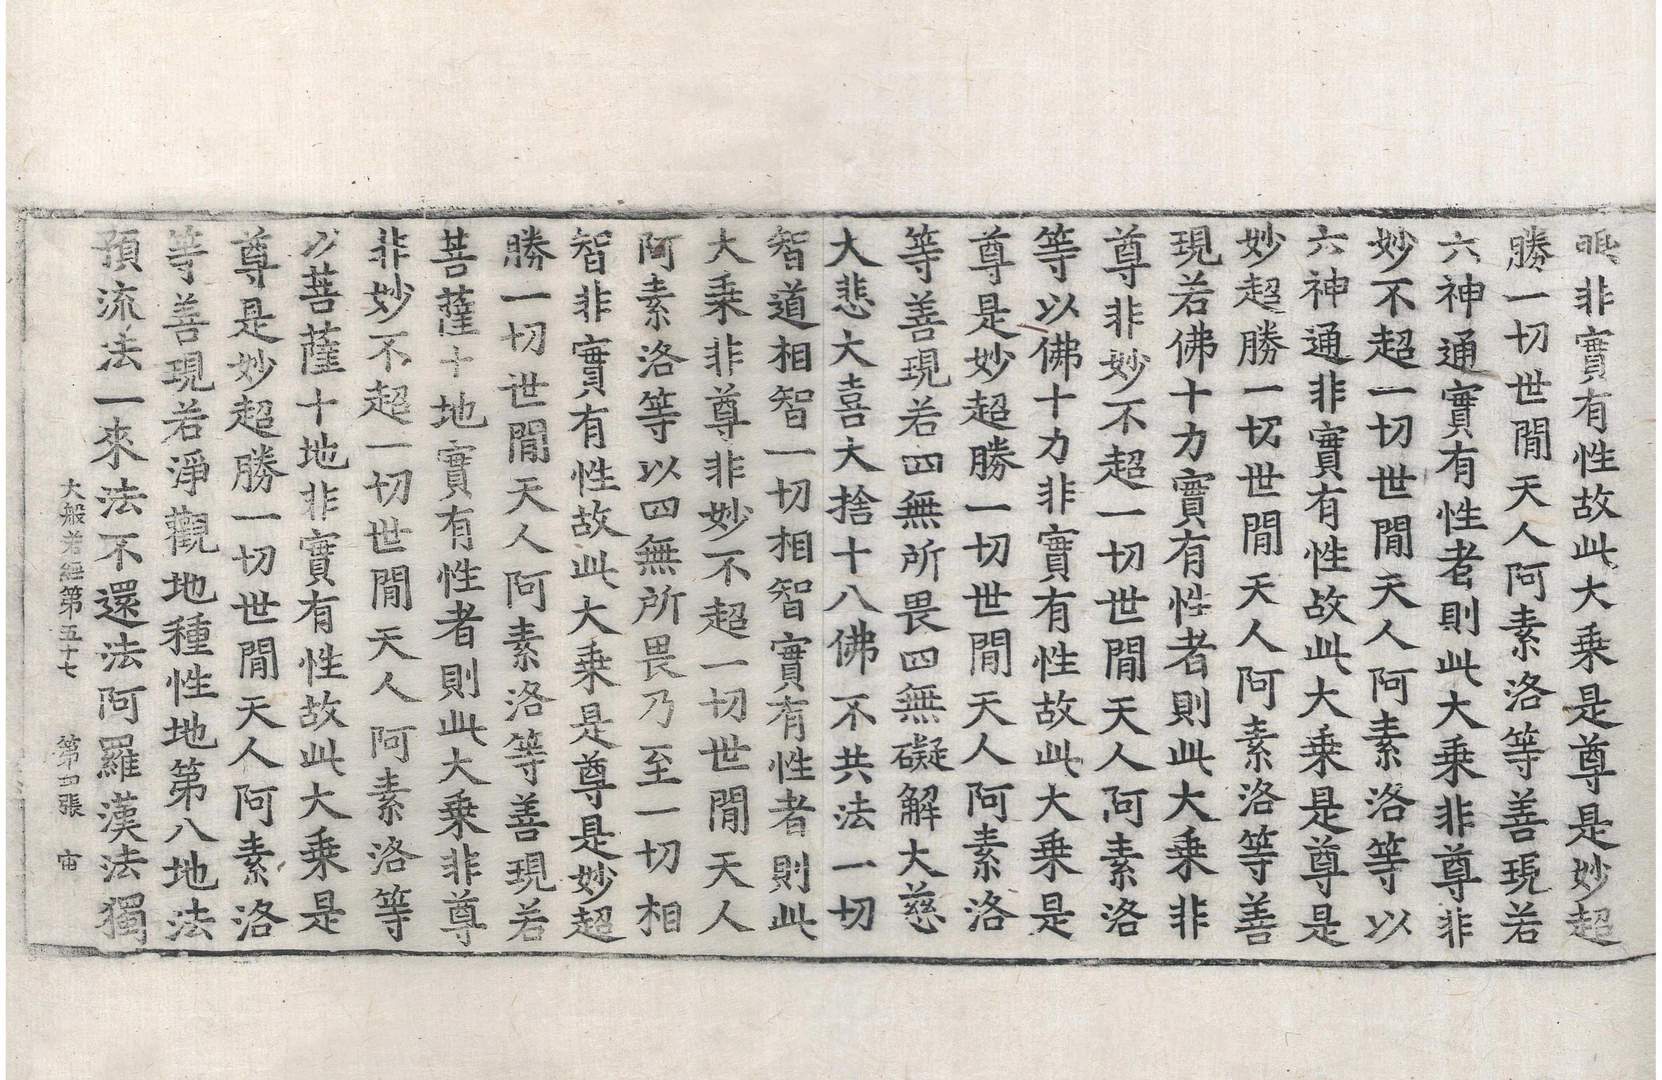 眼非實有性故此大乘是尊是妙超
勝一切世間天人阿素洛等善現若
六神通實有性者則此大乘非尊非
妙不超一切世間天人阿素洛等以
六神通非實有性故此大乘是尊是
妙超勝一切世間天人阿素洛等善
現若佛十力實有性者則此大乘非
尊非妙不超一切世間天人阿素洛
等以佛十力非實有性故此大乘是
尊是妙超勝一切世間天人阿素洛
等善現若四無所畏四無礙解大慈
大悲大喜大捨十八佛不共法一切
智道相智一切相智實有性者則此
大乘非尊非妙不超一切世間天人
阿素洛等以四無所畏乃至一切相
智非實有性故此大乘是尊是妙超
勝一切世間天人阿素洛等善現若
菩薩十地實有性者則此大乘非尊
非妙不超一切世間天人阿素洛等
以菩薩十地非實有性故此大乘是
尊是妙超勝一切世間天人阿素洛
等善現若淨觀地種性地第八地法
預流法一來法不還法阿羅漢法獨
大般若經第五十七 第四張 宙